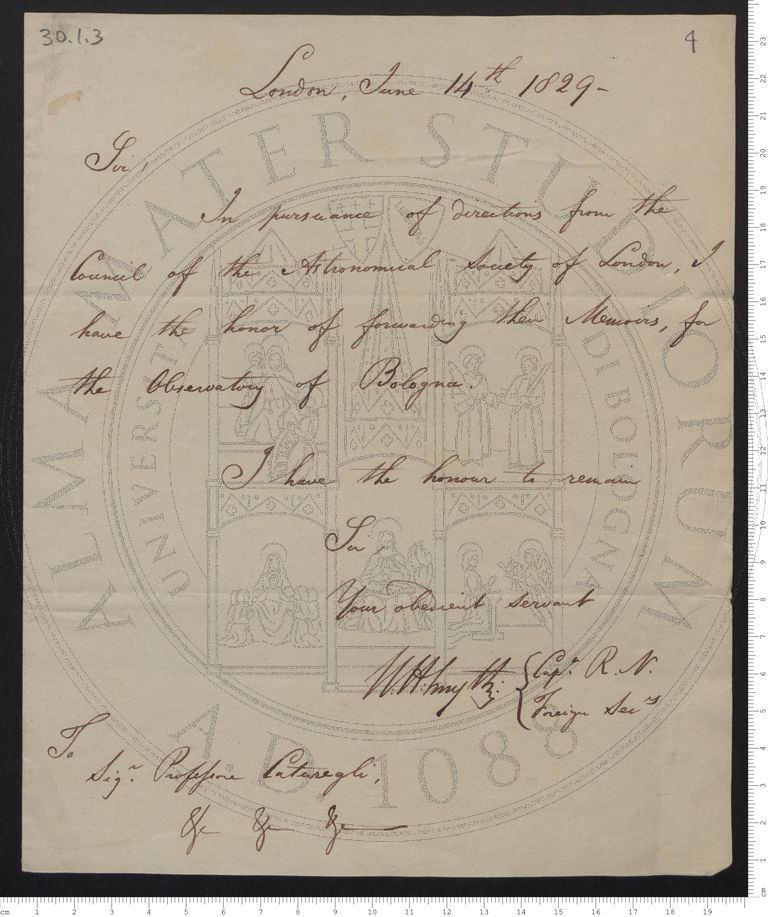 30.1.3
4
London, June 14th 1829-
Sir,
In pursuance of directions from the
Council of the Astronomical Society of London, I
have the honor of forwarding their Memoirs, for
the Observatory of Bologna.
I have the honour to remain
Sir
Your obedient servant
W.H.Smyth. { Capt. R. N.
Foreign Secy
To
Sigr. Professore Caturegli,
&c &c &c
ALMA MATER STUDIORUM
UNIVERSITA DI BOLOGNA
A.D. 1088